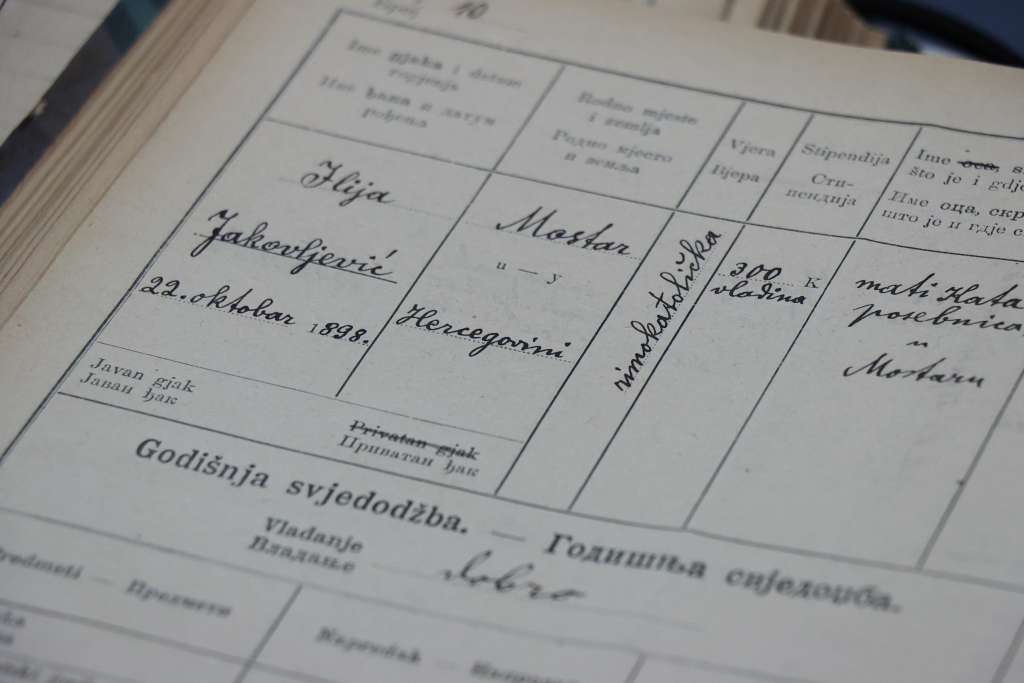 10
Ime gjaka i datum
rogjenja
Име ђака и датум
рођења
Rodno mjesto
i zemlja
Родно мјесто
и земља
Vjera
Вјера
Stipendija
Сти-
пендија
Ime oca,
što je i gdje
Име оца, скр
што је и гдје
Ilija
Jakovljević
22. oktobar 1898.
Mostar
u — у
Hercegovini
rimokatolička
300 K
vladina
mati Kata
posebnica
u
Mostaru
Javan gjak
Јаван ђак
Privatan gjak
Приватан ђак
Godišnja svjedodžba. — Годишња свједоџба.
Vladanje
Владање
dobro
Predmeti — Предмети